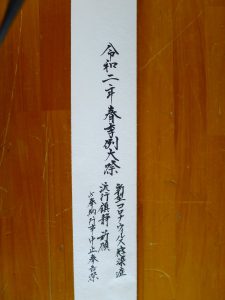 令和二年 春季例大祭
新型コロナウルス感染症
流行鎮静祈願
並奉納行事中止奉告祭